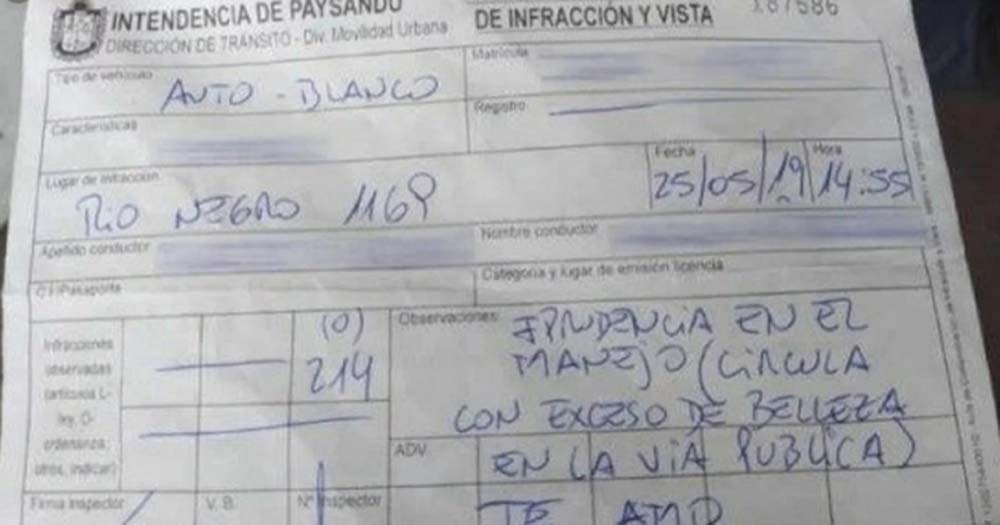 INTENDENCIA DE PAYSANDÚ
DIRECCIÓN DE TRÁNSITO - Div. Movilidad Urbana
DE INFRACCIÓN Y VISTA
187586
Tipo de vehículo
AUTO - BLANCO
Matrícula
Registro
Características
Lugar de infracción
RIO NEGRO 1169
Fecha
25/05/19
Hora
14:55
Apellido conductor
Nombre conductor
C.I/Pasaporte
Categoría y lugar de emisión licencia
Infracciones
observadas
(artículos L-
ley, O-
ordenanza,
otros, indicar)
(O)
214
Observaciones:
PRUDENCIA EN EL
MANEJO (CIRCULA
CON EXCESO DE BELLEZA
EN LA VIA PUBLICA)
TE AMO
ADV.
Firma Inspector
V. B.
Nº Inspector